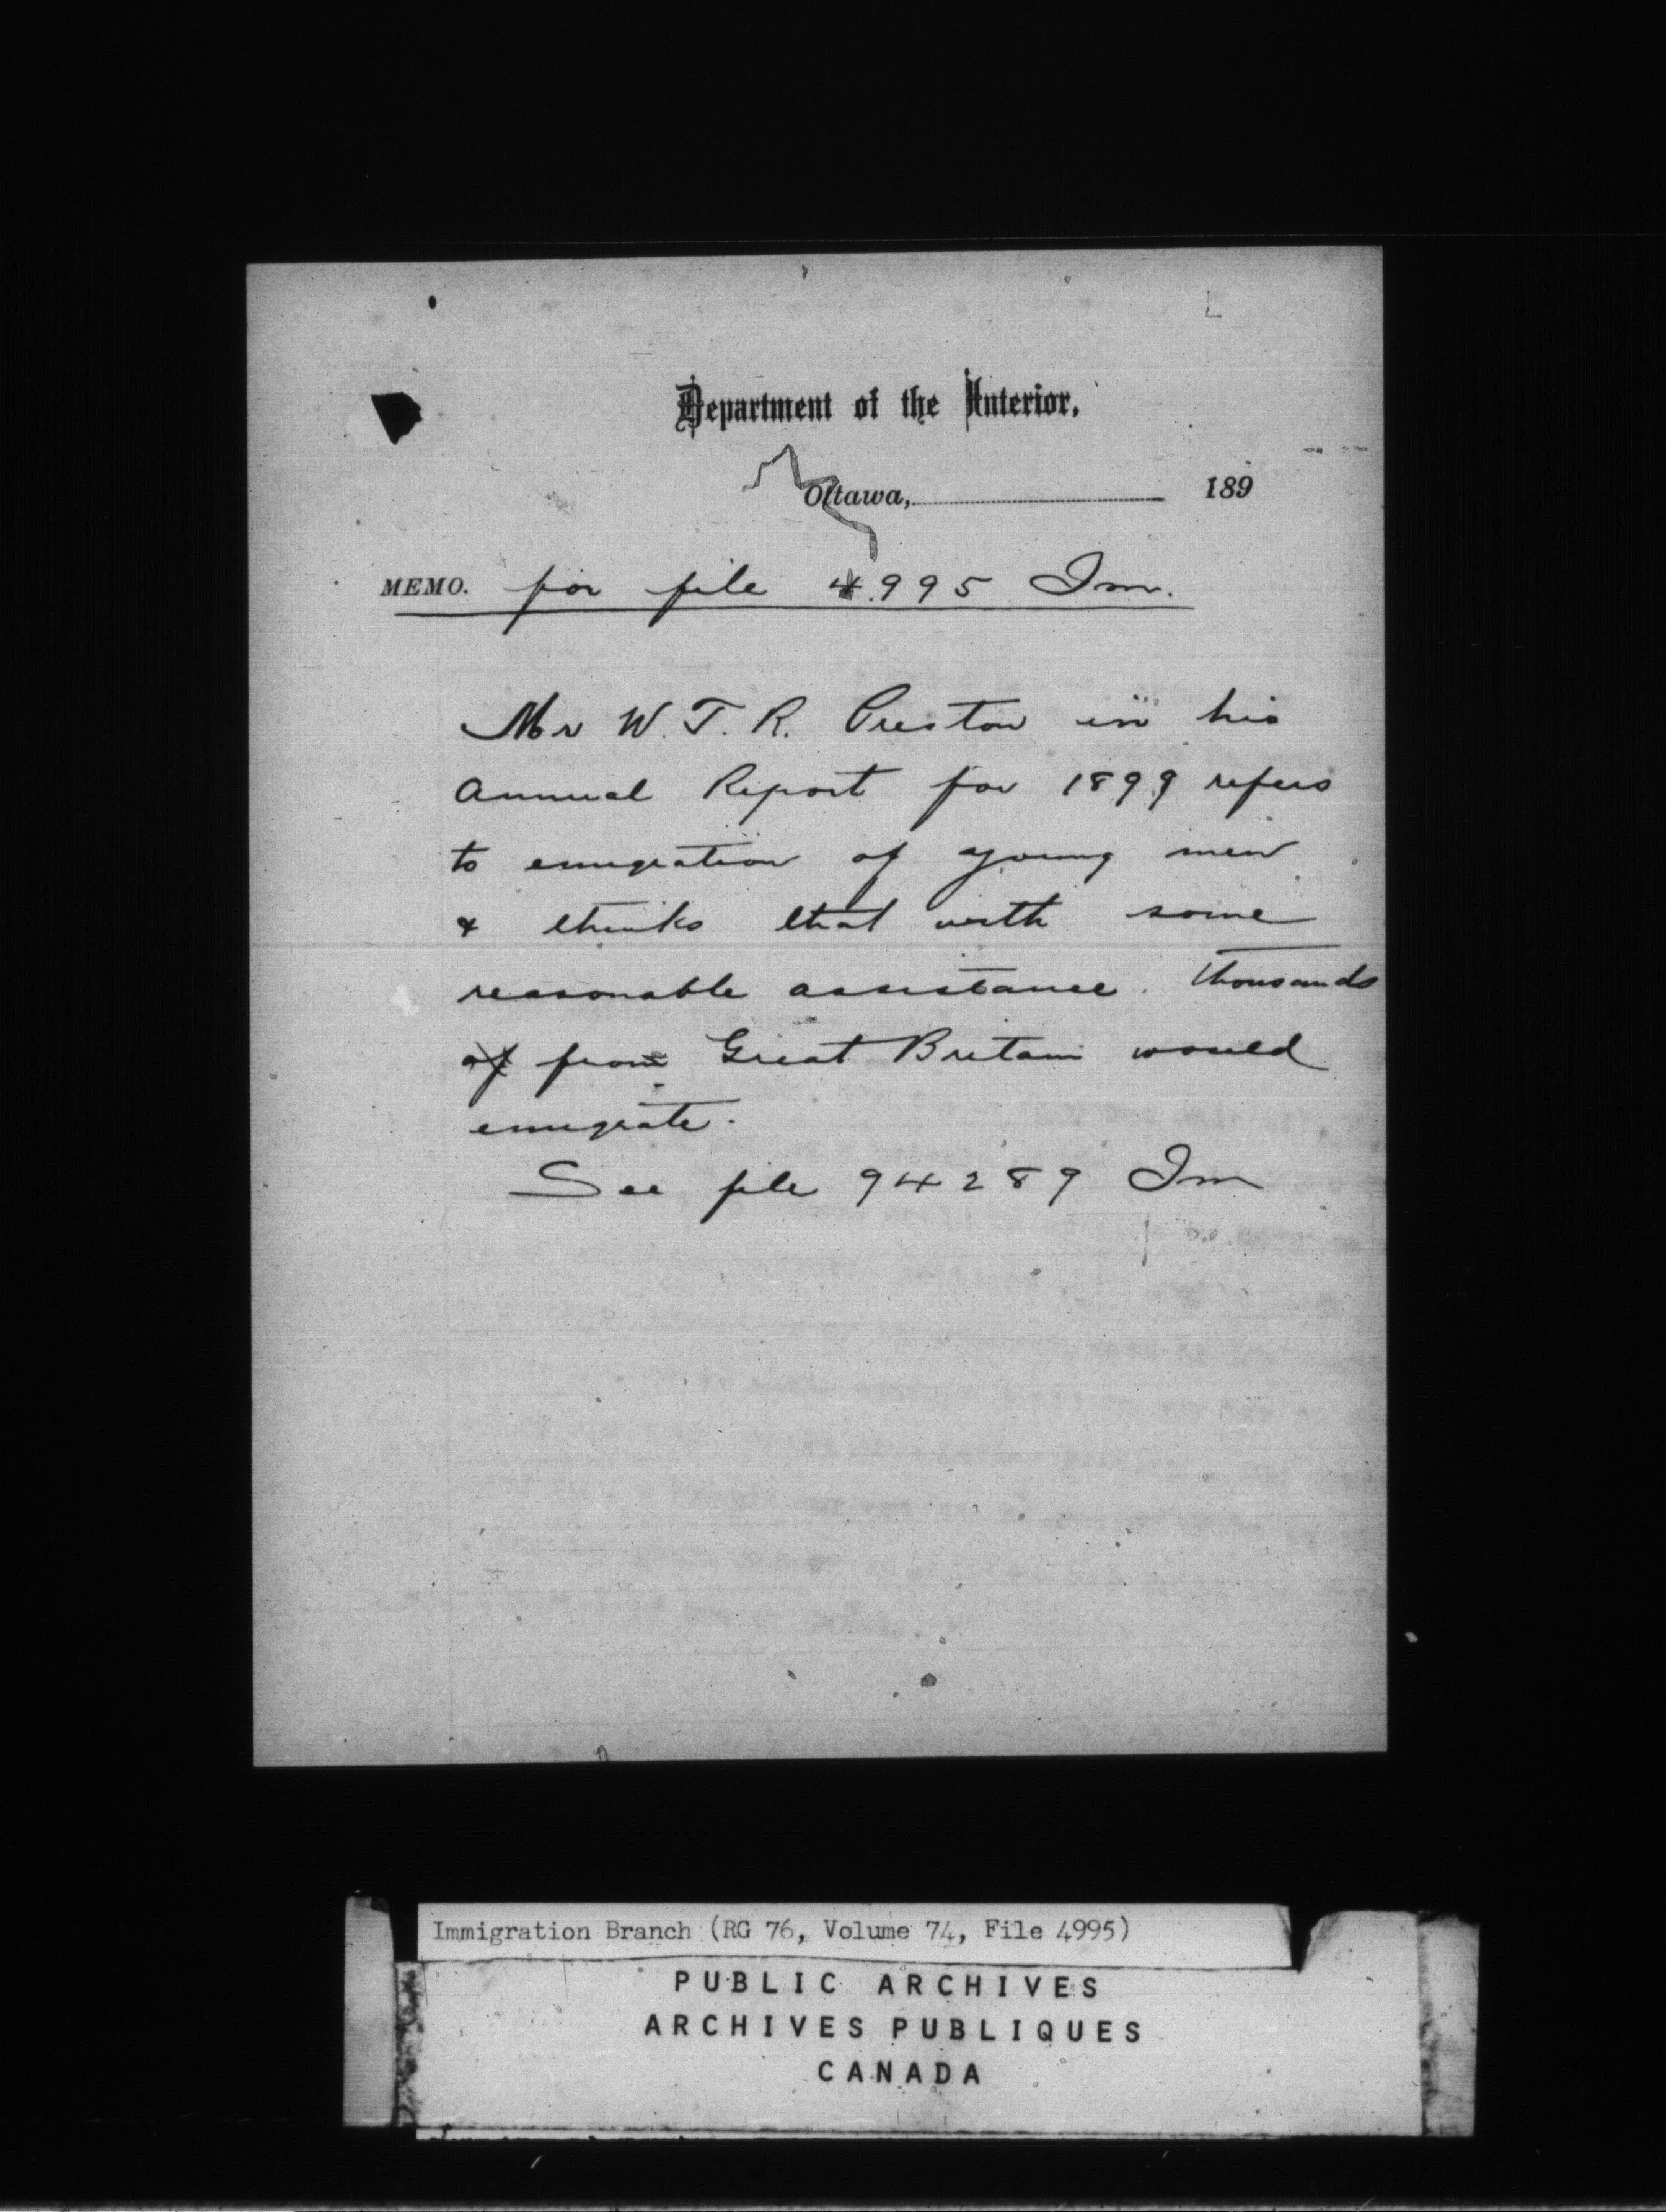 Department of the Interior,
Ottawa, 189
MEMO. for file 4995 Im.
Mr W. T. R. Preston in his
Annual Report for 1899 refers
to emigration of young men
& thinks that with some
reasonable assistance. thousands
of from Great Britain would
emigrate.
See file 94289 Im
Immigration Branch (RG 76, Volume 74, File 4995)
PUBLIC ARCHIVES
ARCHIVES PUBLIQUES
CANADA